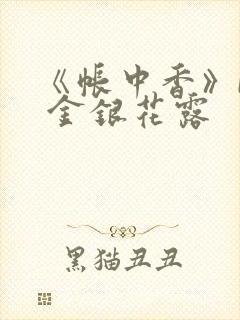 《帐中香》
金银花露
黑猫丑丑